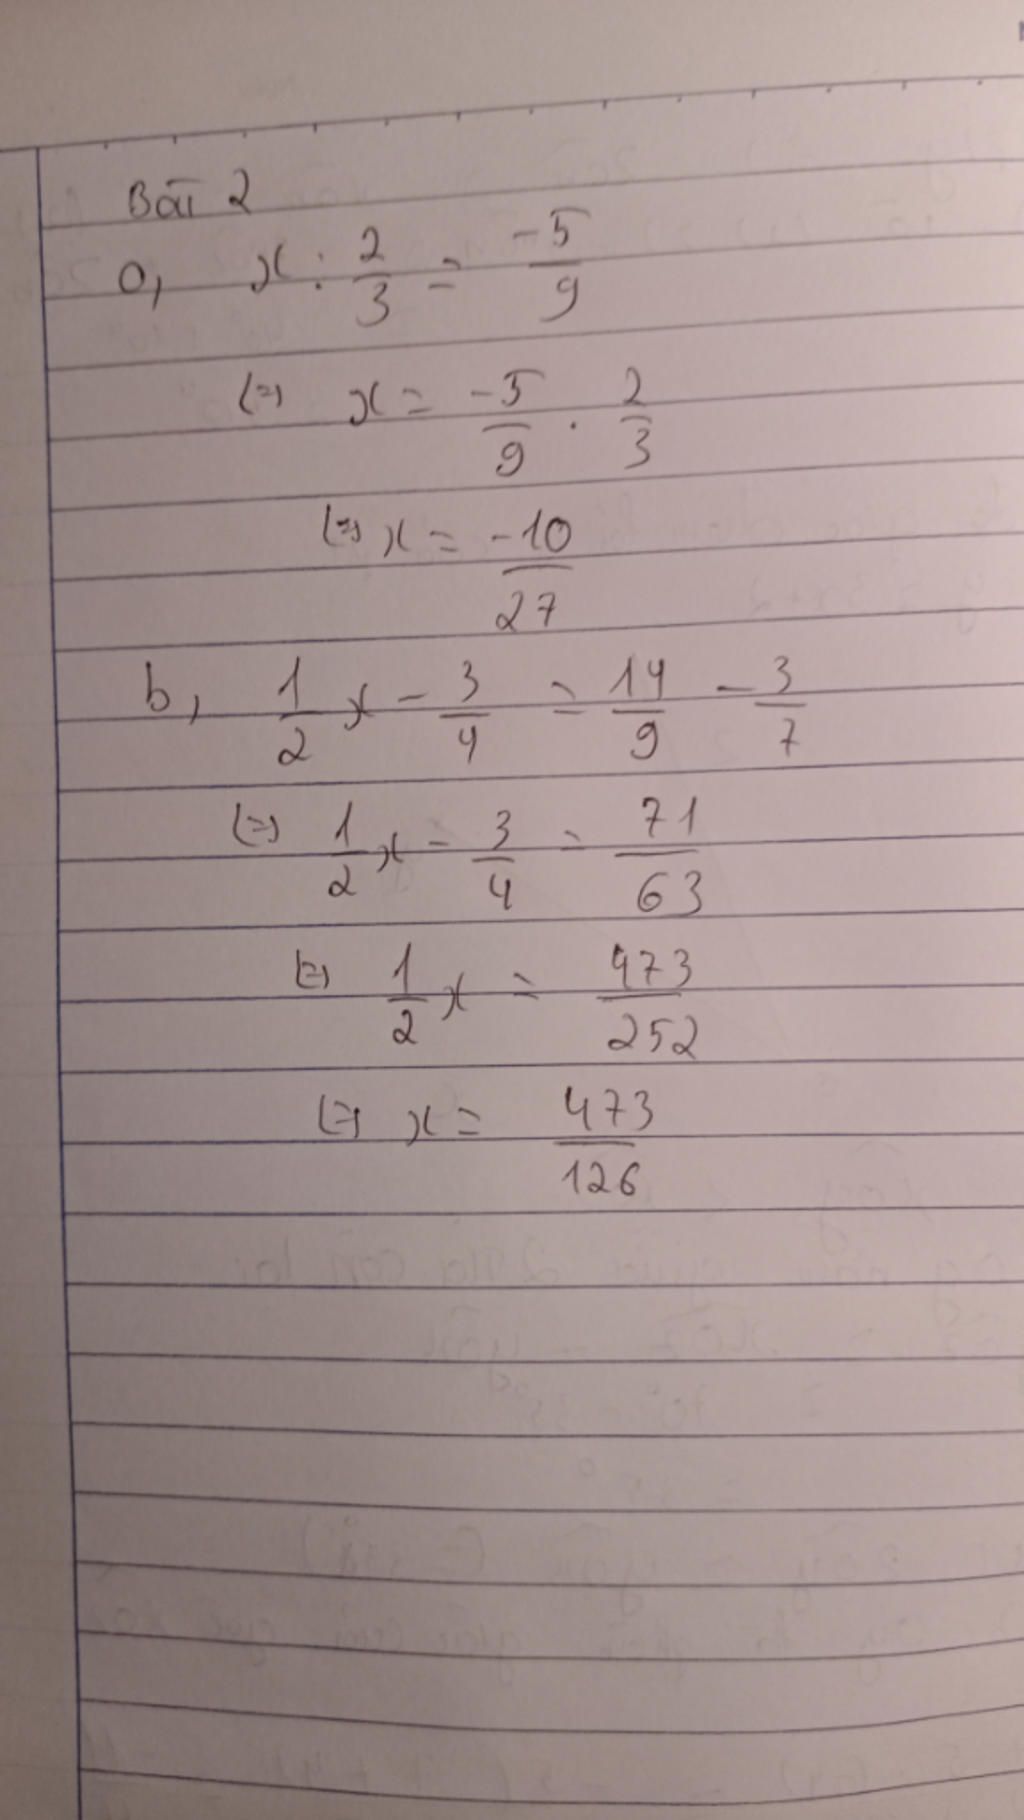 Bài 2
a, x : 2/3 = -5/9
(=) x = -5/9 . 2/3
(=) x = -10/27
b, 1/2 x - 3/4 = 14/9 - 3/7
(=) 1/2 x - 3/4 = 71/63
(=) 1/2 x = 473/252
(=) x = 473/126